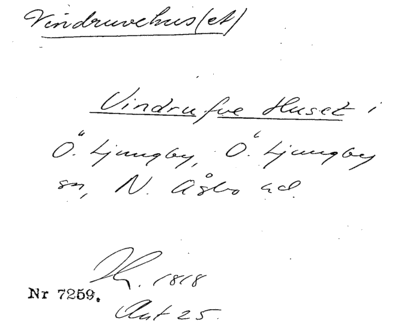 Vindruvehus(et)
Vindrufve Huset i
Ö. Ljungby, Ö. Ljungby
sn, N. Åsbo hd.
1818
Nr 7259.
25.